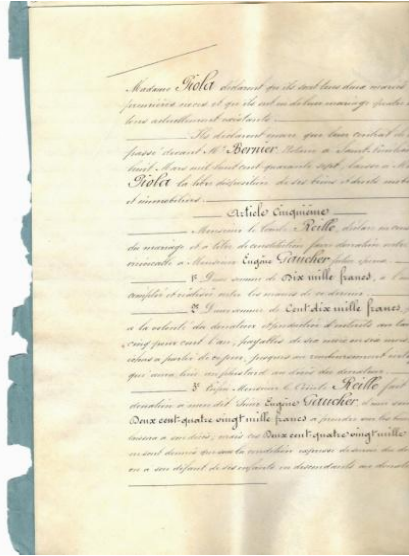 Madame Piola déclarent qu'ils sont tous deux mariés
premières noces et que ils ont eu de leur mariage quatre
tous actuellement existants
Ils déclarent encore que leur contrat de
passé devant Me Bernier, Notaire à Saint
huit Mars mil huit cent quarante sept, laisse à M
Piola la libre disposition de ses biens et droits
et immobiliers.
Article Cinquième
Monsieur le Comte Reille, déclare
du mariage et à titre de constitution faire donation entre
à Monsieur Eugène Gaucher futur époux
1° D'une somme de Dix mille francs, à
comptée et réalisée entre les mains de ce dernier
2° D'une somme de Cent dix mille francs,
à la volonté du donateur et produire d'intérêts au taux
cinq pour cent l'an, payables de six mois en six mois
à partir de ce jour, jusqu'au remboursement
qui aura lieu au plus tard au décès du donateur.
3° Enfin Monsieur le Comte Reille fait
donation à mon dit Sieur Eugène Gaucher, d'une
Deux cent quatre vingt mille francs à prendre sur les biens
laissera à son décès, mais ces Deux cent quatre vingt mille
ne sont donnés que sous la condition expresse de survie du
ou à son défaut de ses enfants ou descendants au